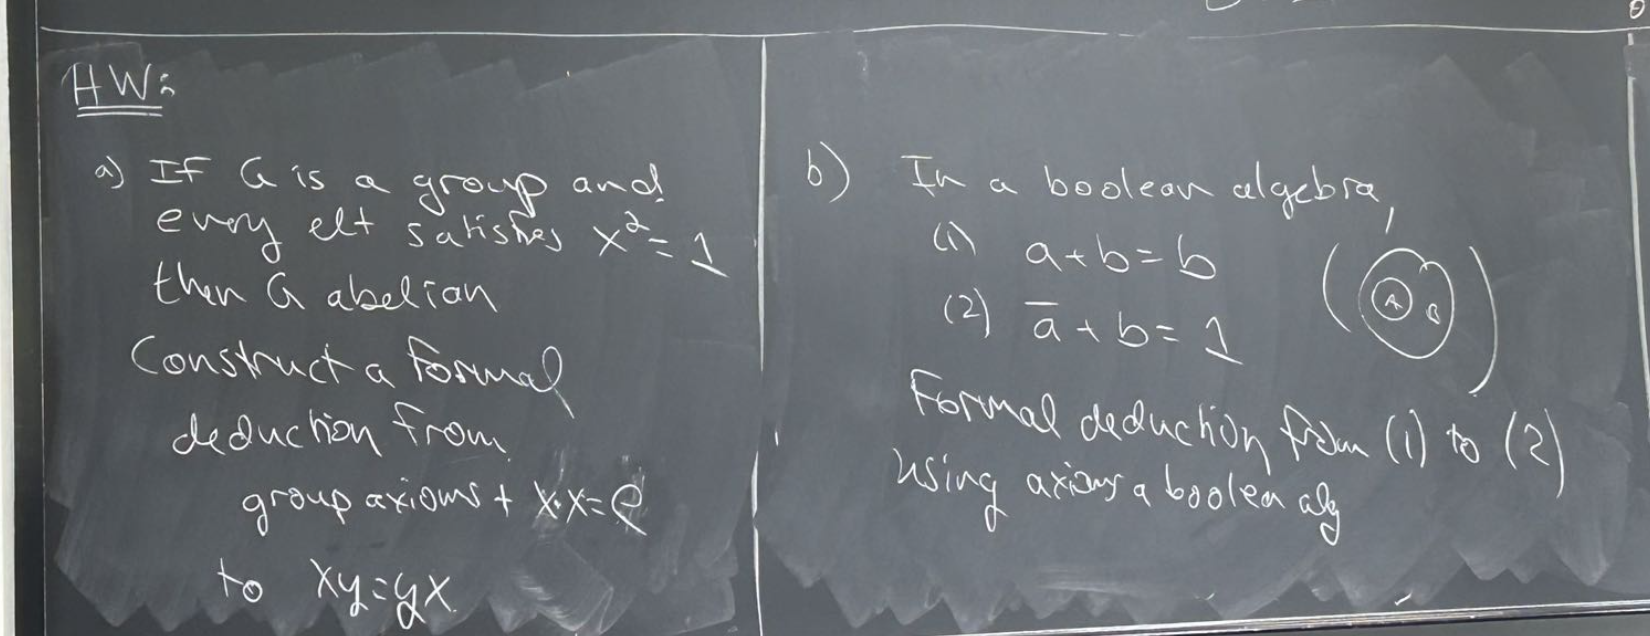 HW:
a) If G is a group and
every elt satisfies x² = 1
then G abelian
Construct a formal
deduction from
group axioms + x·x=e
to xy=yx.
b) In a boolean algebra,
(1) a+b=b
(2) ā+b=1
(A B)
Formal deduction from (1) to (2)
using axioms a boolean alg